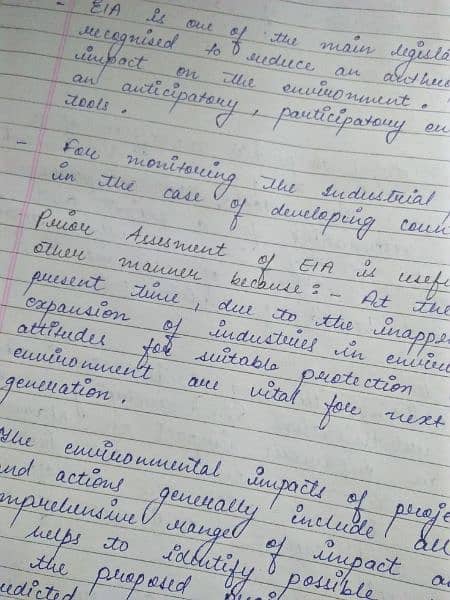 - EIA is one of the main legisla
recognised to reduce an anth
impact on the environment.
an anticipatory, participatory en
tools.
- For monitoring the Industrial
in the case of developing coun
Prior Assesment of EIA is usef
other manner because:- At the
present time, due to the inapp
expansion of industries in envir
attitudes for suitable protection
environment are vital for next
generation.
The environmental impacts of proje
and actions generally include all
omprehensive range of impact a
helps to identify possible
the proposed
edicted